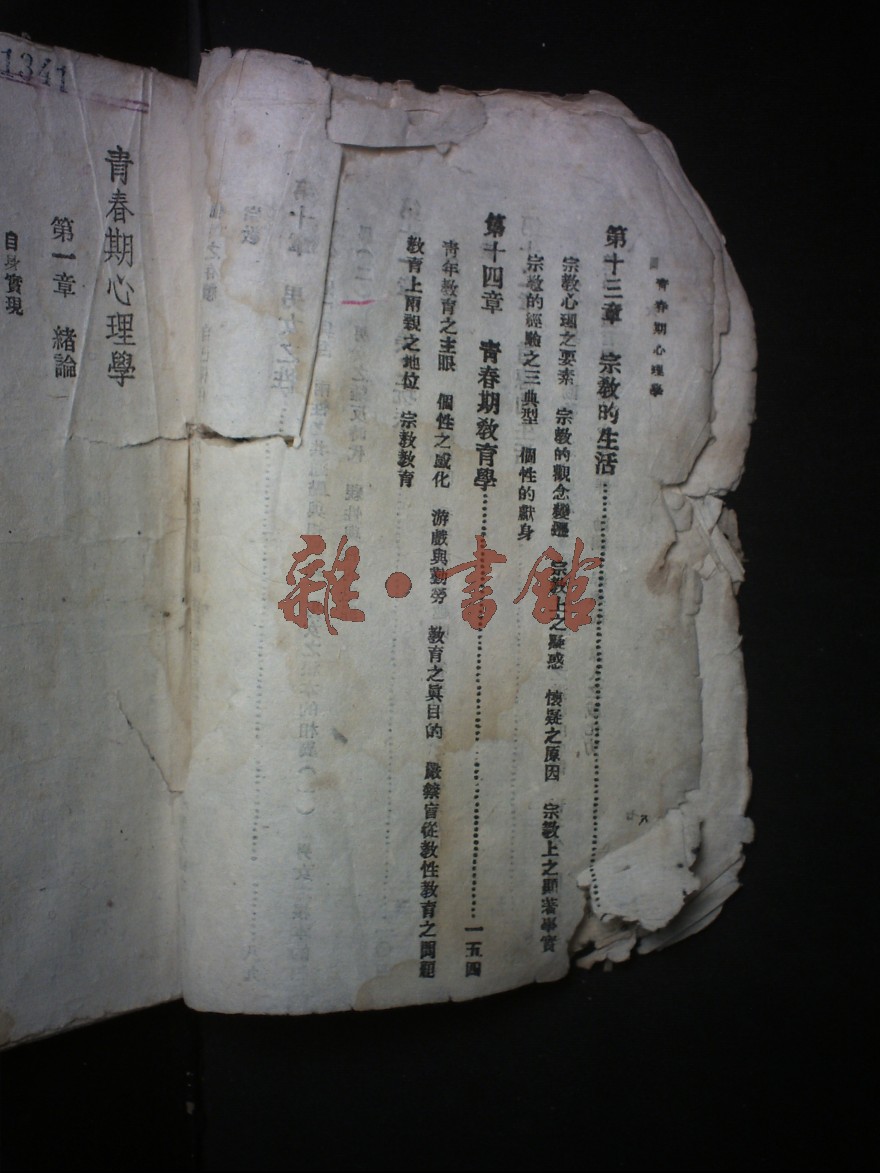 青春期心理學
第十三章 宗教的生活
宗教心理之要素 宗教的觀念變遷 宗教上之疑惑 懷疑之原因 宗教上之顯著事實
宗教的經驗之三典型 個性的獻身
第十四章 青春期教育學 一五四
青年教育之主眼 個性之感化 游戲與勤勞 教育之眞目的 嚴禁盲從教性教育之問題
教育上兩親之地位 宗教教育
1341
青春期心理學
第一章 緒論
自身實現
雜·書館